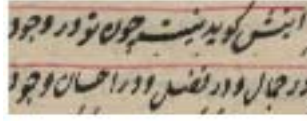 آتشش گوید نیست چون تو در وجود
در جمال و در فضل و در احسان و جود